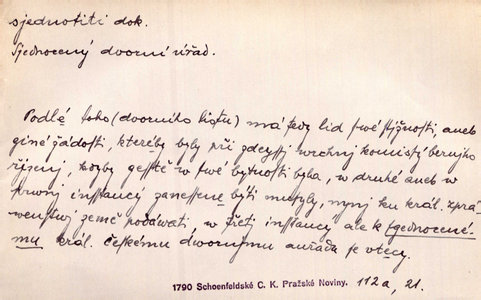 sjednotiti dok.
Sjednocený dvorní úřad.
Podlé toho (dvorního listu) má svy lid swé stjžnosti, aneb
giné žádosti, kteréby byly při zdeyssj wrchnj komissý bernjho
řjzenj, kdyby gesstě w swé bytnosti byla, w druhé aneb w
trwnj instancý zanessené býti musyly, nynj ku král. zprá-
wenstwj zemč podáwati, w třetj instancý ale k sgednocené-
mu král. českému dwornjmu auřadu se vtecy.
1790 Schoenfeldské C. K. Pražské Noviny. 112a, 21.